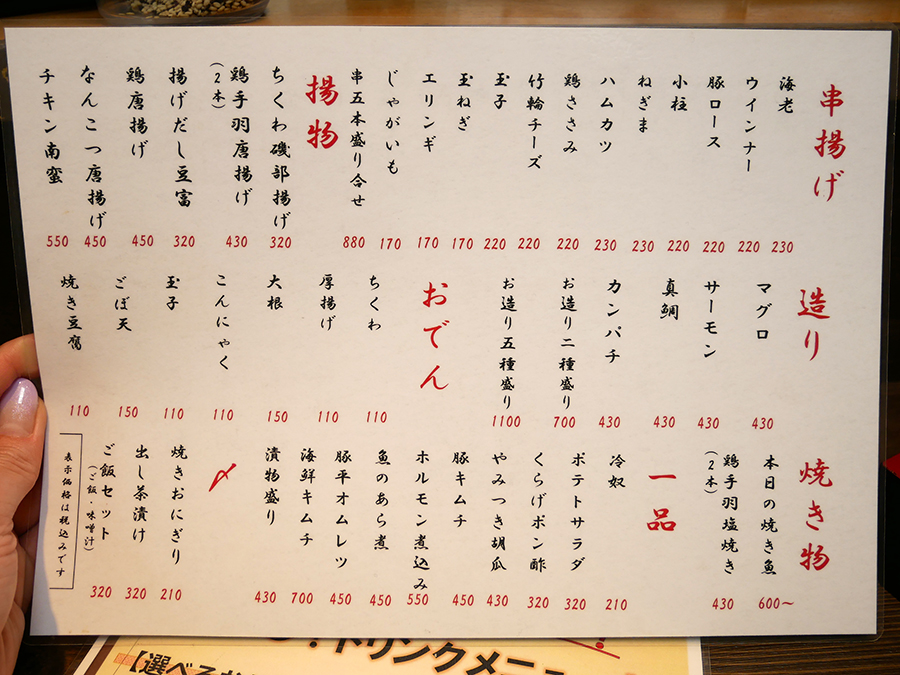 串揚げ
海老 230
ウインナー 220
豚ロース 220
小柱 220
ねぎま 230
ハムカツ 230
鶏ささみ 220
竹輪チーズ 220
玉子 220
玉ねぎ 170
エリンギ 170
じゃがいも 170
串五本盛り合せ 880
揚物
ちくわ磯部揚げ 320
鶏手羽唐揚げ
(2本) 430
揚げだし豆富 320
鶏唐揚げ 450
なんこつ唐揚げ 450
チキン南蛮 550
造り
マグロ 430
サーモン 430
真鯛 430
カンパチ 430
お造り二種盛り 700
お造り五種盛り 1100
おでん
ちくわ 110
厚揚げ 110
大根 150
こんにゃく 110
玉子 110
ごぼ天 150
焼き豆腐 110
焼き物
本日の焼き魚 600〜
鶏手羽塩焼き
(2本) 430
一品
冷奴 210
ポテトサラダ 320
くらげポン酢 320
やみつき胡瓜 430
豚キムチ 450
ホルモン煮込み 550
魚のあら煮 450
豚平オムレツ 450
海鮮キムチ 700
漬物盛り 430
〆
焼きおにぎり 210
出し茶漬け 320
ご飯セット
(ご飯・味噌汁) 320
表示価格は税込みです
ドリンクメニュー
【選べる